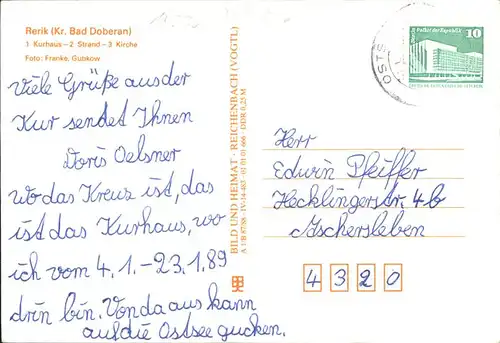 Rerik (Kr. Bad Doberan)
1 Kurhaus – 2 Strand – 3 Kirche
Foto: Franke, Gubkow
Viele Grüße aus der
Kur sendet Ihnen
Doris Oelsner
wo das Kreuz ist, das
ist das Kurhaus, wo
ich vom 4.1.-23.1.89
drin bin. Von da aus kann
auf die Ostsee gucken.
BILD UND HEIMAT · REICHENBACH (VOGTL)
OSTS
Palast der Republik
10
Herr
Edwin Pfeiffer
Hecklingerstr. 4b
Aschersleben
4 3 2 0